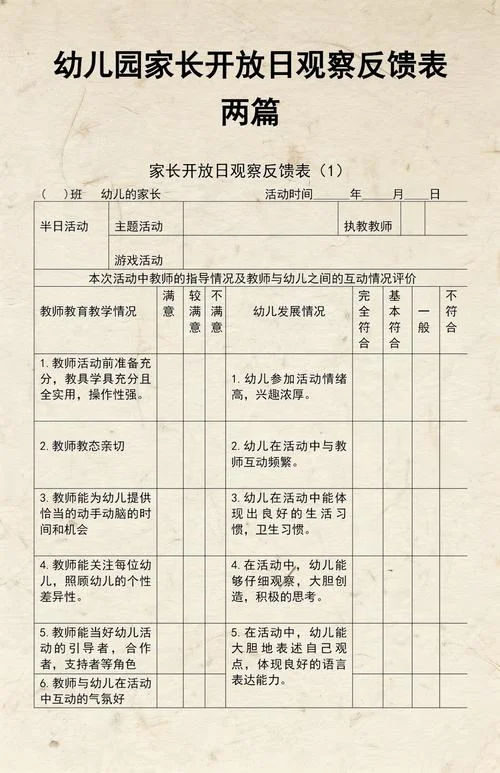 幼儿园家长开放日观察反馈表
两篇
家长开放日观察反馈表（1）
（ ）班 幼儿的家长 活动时间____年____月__日
半日活动 主题活动 执教教师
游戏活动
本次活动中教师的指导情况及教师与幼儿之间的互动情况评价
教师教育教学情况 满意 较满意 不满意 幼儿发展情况 完全符合 基本符合 一般 不符合
1.教师活动前准备充
分，教具学具充分且
全实用，操作性强。
1.幼儿参加活动情绪
高，兴趣浓厚。
2.教师教态亲切
2.幼儿在活动中与教
师互动频繁。
3.教师能为幼儿提供
恰当的动手动脑的时
间和机会
3.幼儿在活动中能体
现出良好的生活习
惯，卫生习惯。
4.教师能关注每位幼
儿，照顾幼儿的个性
差异性。
4.在活动中，幼儿能
够仔细观察，大胆创
造，积极的思考。
5.教师能当好幼儿活
动的引导者，合作
者，支持者等角色
5.在活动中，幼儿能
大胆地表述自己观
点，体现良好的语言
表达能力。
6.教师与幼儿在活动
中互动的气氛好